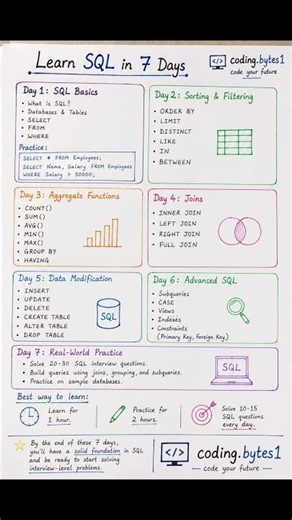 Learn SQL in 7 Days
</> coding.bytes1
code your future
Day 1: SQL Basics
• What is SQL?
• Databases & Tables
• SELECT
• FROM
• WHERE
Practice:
SELECT * FROM Employees;
SELECT Name, Salary FROM Employees
WHERE Salary > 50000;
Day 2: Sorting & Filtering
• ORDER BY
• LIMIT
• DISTINCT
• LIKE
• IN
• BETWEEN
Day 3: Aggregate Functions
• COUNT()
• SUM()
• AVG()
• MIN()
• MAX()
• GROUP BY
• HAVING
Day 4: Joins
• INNER JOIN
• LEFT JOIN
• RIGHT JOIN
• FULL JOIN
Day 5: Data Modification
• INSERT
• UPDATE
• DELETE
• CREATE TABLE
• ALTER TABLE
• DROP TABLE
SQL
Day 6: Advanced SQL
• Subqueries
• CASE
• Views
• Indexes
• Constraints
(Primary Key, Foreign Key)
Day 7: Real-World Practice
• Solve 20-30 SQL interview questions.
• Build queries using joins, grouping, and subqueries.
• Practice on sample databases.
SQL
Best way to learn:
Learn for
1 hour.
Practice for
2 hours.
Solve 10-15
SQL questions
every day.
By the end of these 7 days,
you'll have a solid foundation in SQL
and be ready to start solving
interview-level problems.
</> coding.bytes1
code your future